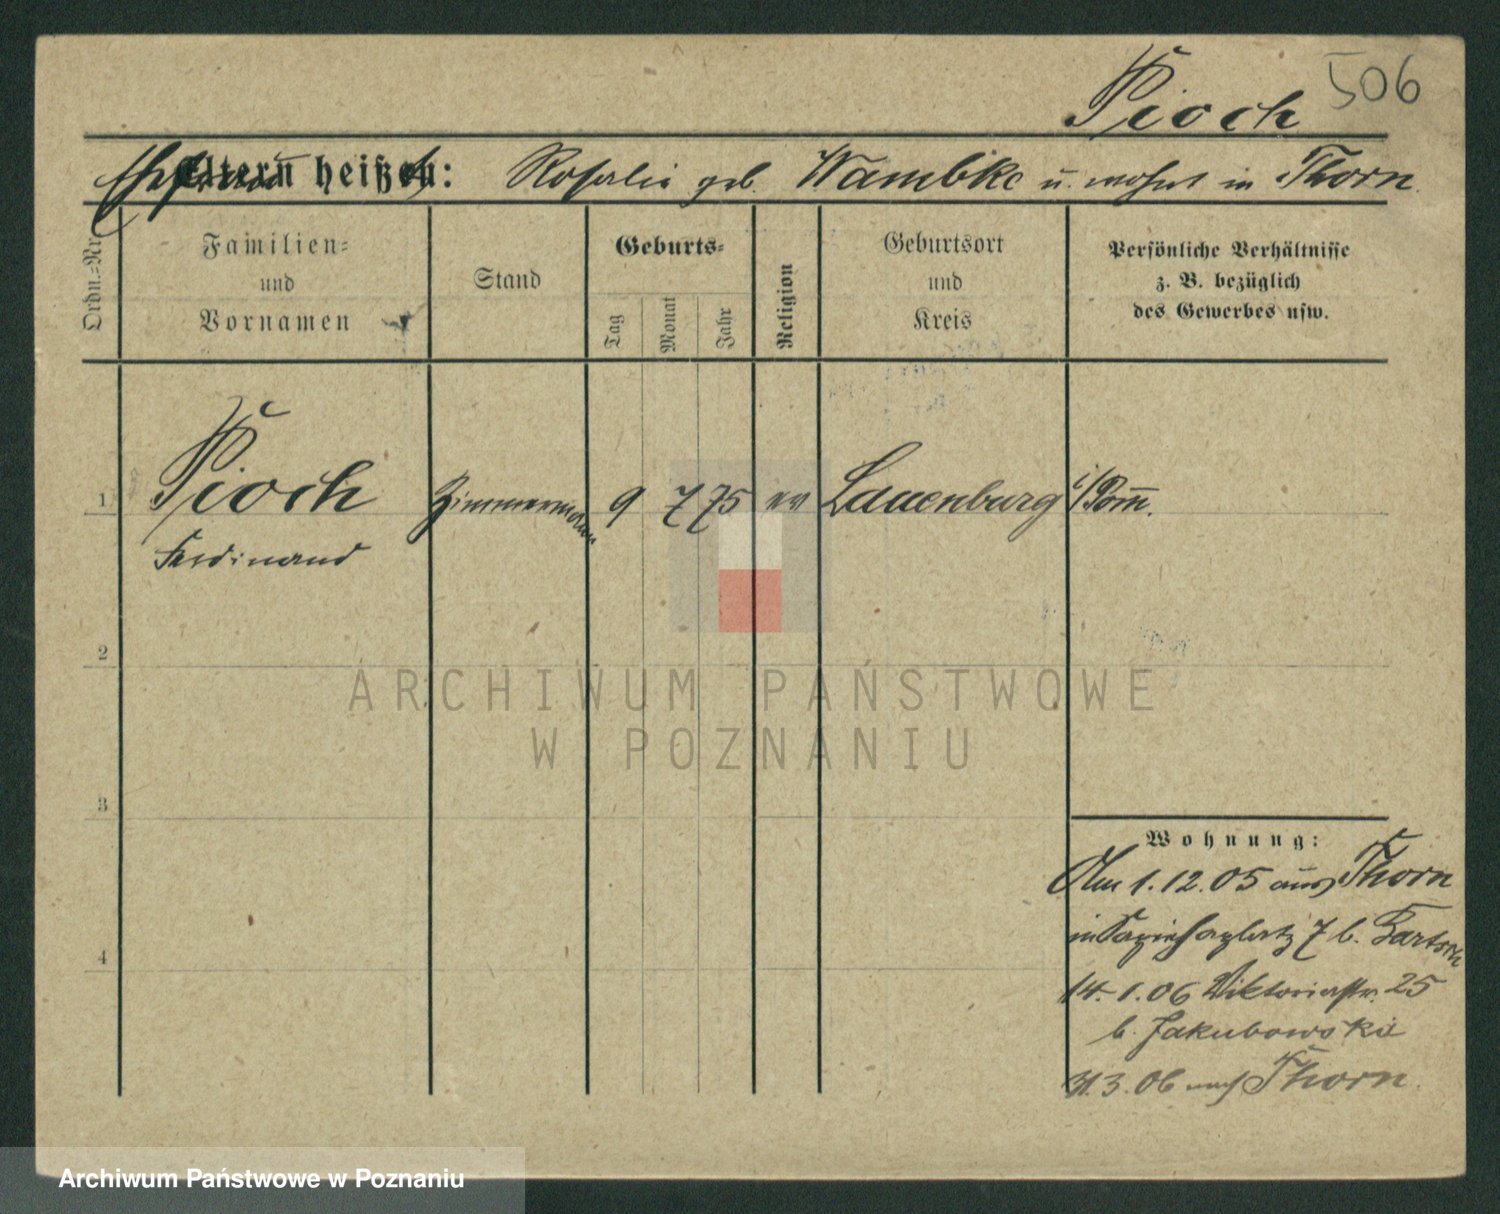 Pioch 506
Ehefrau Eltern heißen: Rosalie geb. Wambke u. wohnt in Thorn.
Ordn.=Nr.
Familien=
und
Vornamen
Stand
Geburts=
Tag
Monat
Jahr
Religion
Geburtsort
und
Kreis
Persönliche Verhältnisse
z. B. bezüglich
des Gewerbes usw.
1 Pioch Zimmermann 9 7 75 ev Lauenburg i/Pom.
Ferdinand
2
ARCHIWUM PAŃSTWOWE
W POZNANIU
3
Wohnung:
Am 1.12.05 aus Thorn
in Sapiehaplatz 7 b.
4
14.1.06 Viktoriastr. 25
b. Jakubowski
31.3.06 nach Thorn.
Archiwum Państwowe w Poznaniu